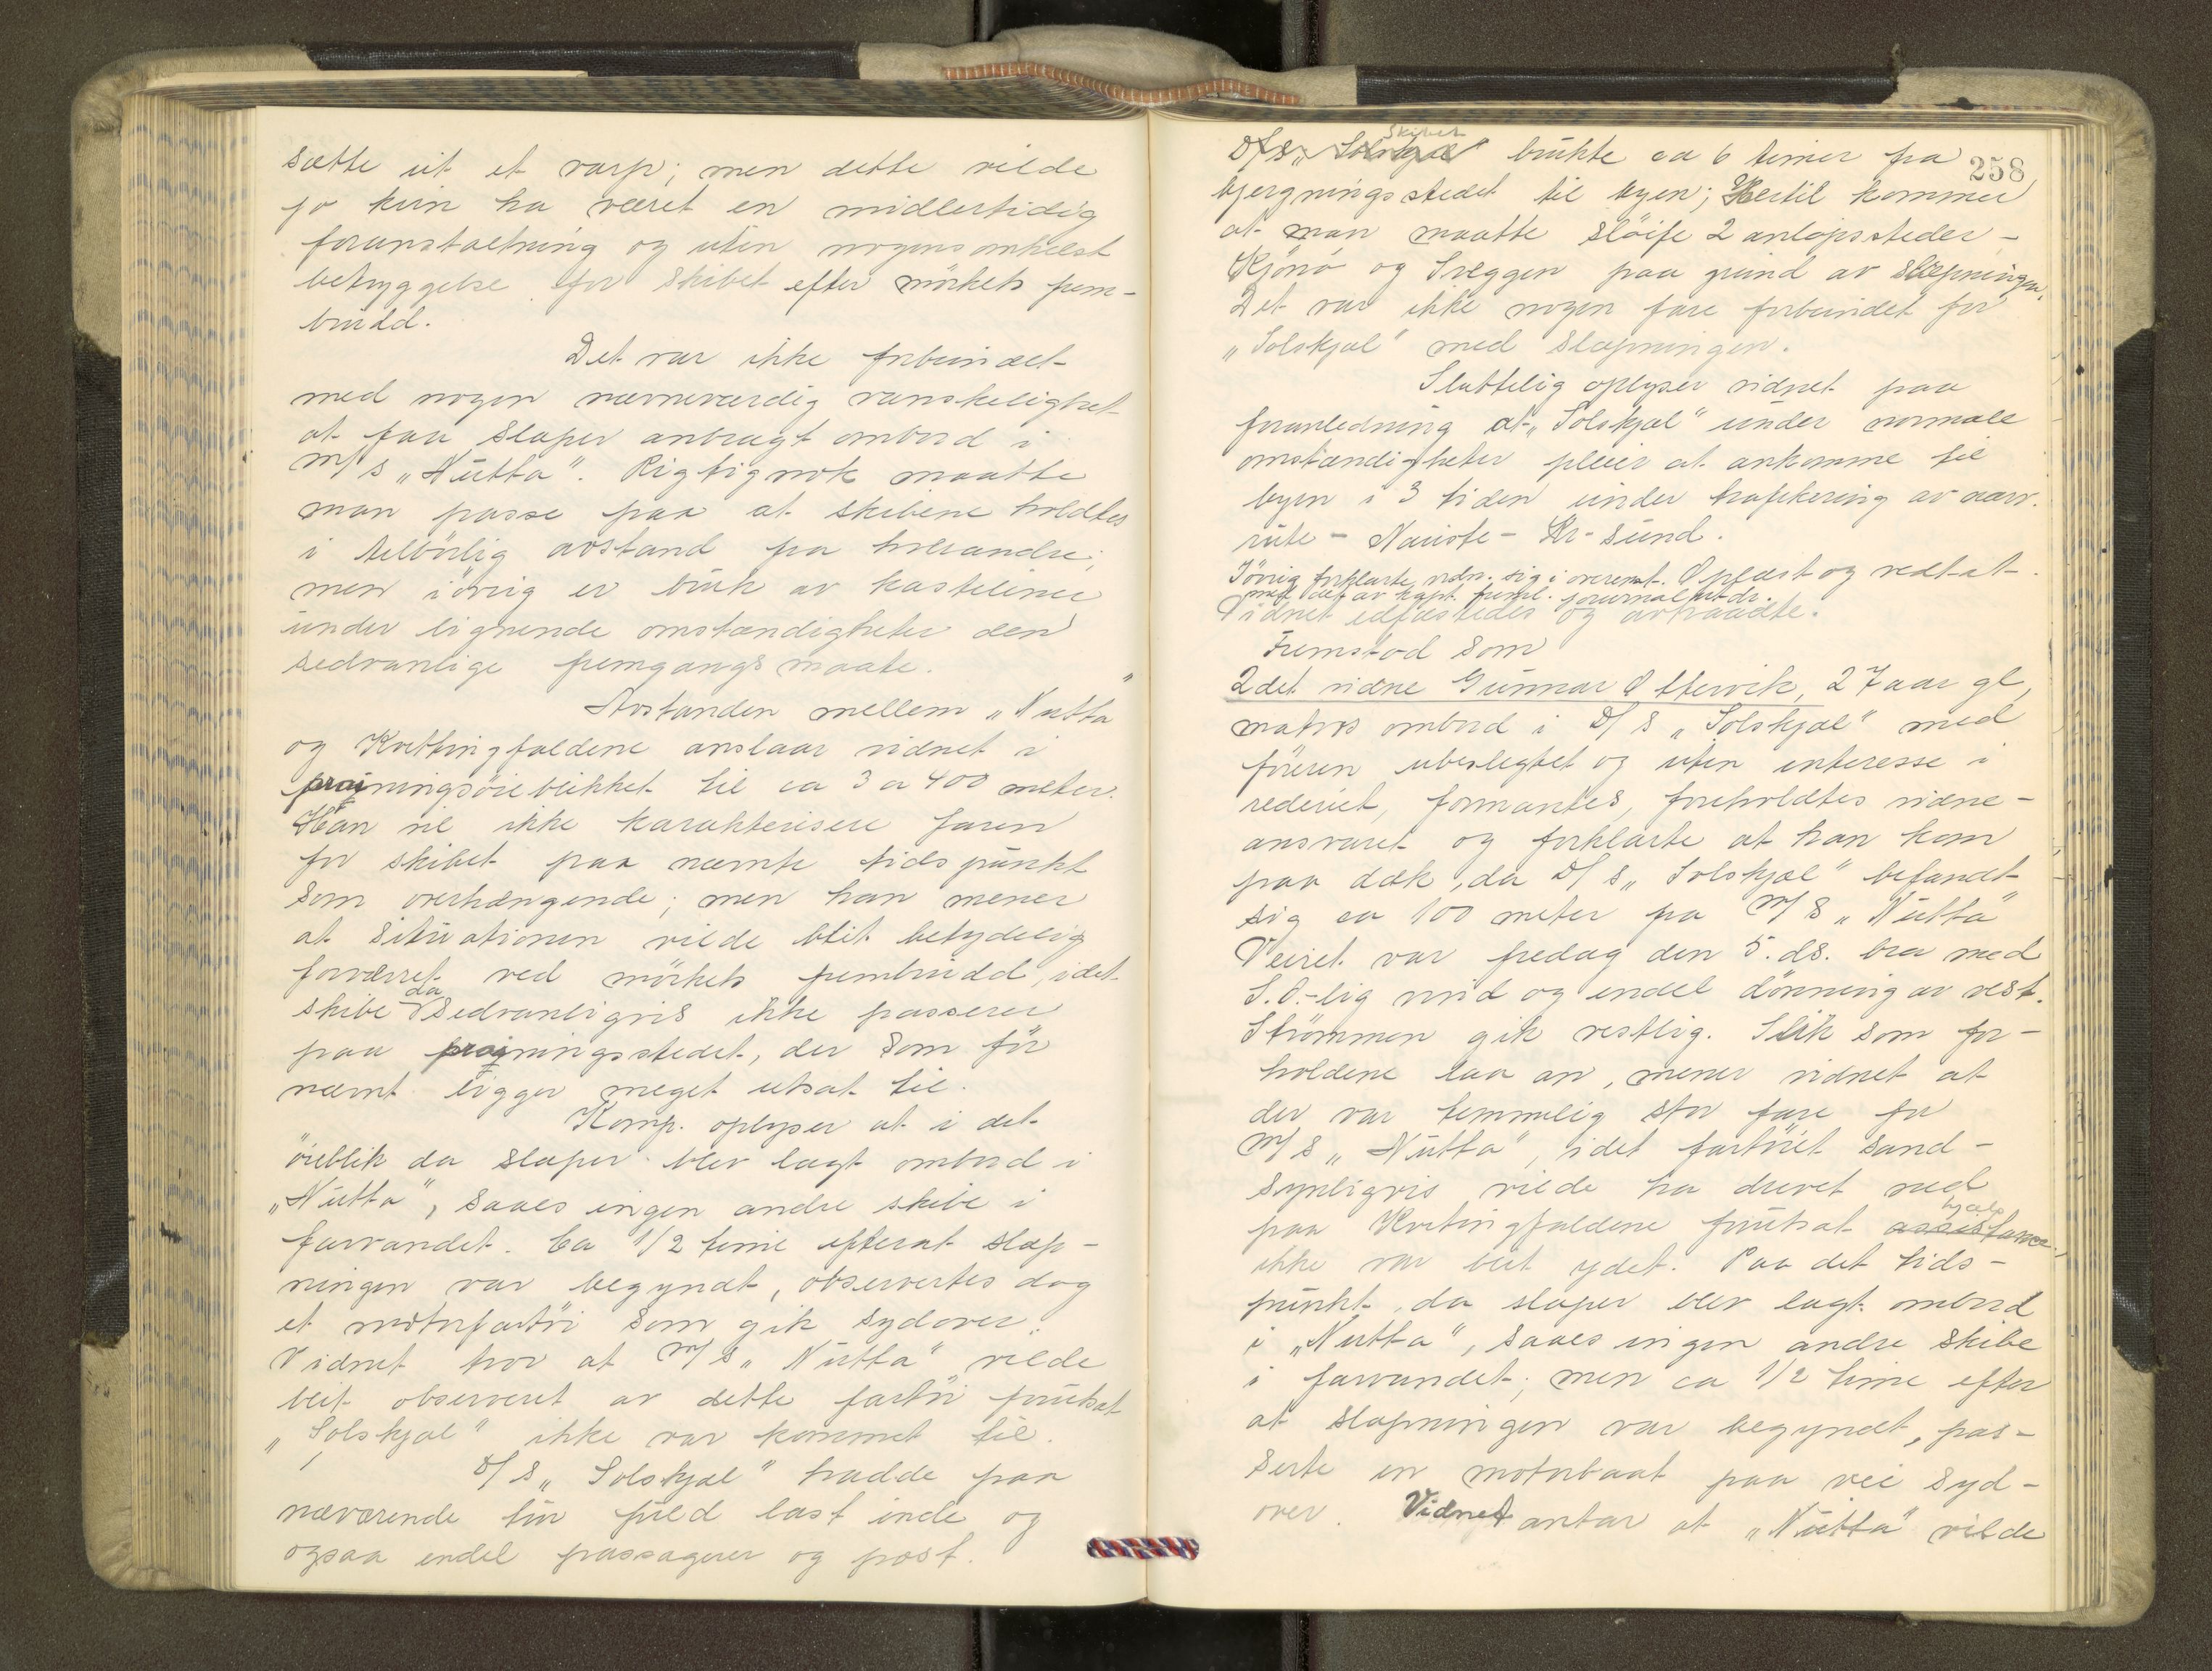 sætte ut et varp; men dette vilde
jo kun ha været en midlertidig
foranstaltning og uten nogensomhelst
betryggelse for skibet efter mörkets frem-
brudd.
Det var ikke forbundet
med nogen nævneværdig vanskelighet
at faa slæper anbragt ombord i
M/S „Nutta". Rigtignok maatte
man passe paa at skibene holdtes
i tilbörlig avstand fra hverandre;
men iövrig er bruk av kasteliner
under lignende omstændigheter den
sedvanlige fremgangsmaate.
Avstanden mellem „Nutta"
og Kvitingfaldene anslaar vidnet i
prainingsöieblikket til ca 3 a 400 meter.
Han vil ikke karakterisere faren
for skibet paa nævnte tidspunkt
som overhængende; men han mener
at situationen vilde blit betydelig
forværret ved mörkets frembrudd, idet
skibe da sedvanligvis ikke passerer
paa prainingsstedet, der som för
nævnt ligger meget utsat til.
Komp. oplyser at i det
öieblik da slæper blev lagt ombord i
„Nutta", saaes ingen andre skibe i
farvandet. Ca 1/2 time efterat slæp-
ningen var begyndt, observertes dog
et motorfartöi som gik sydover.
Vidnet tror at M/S „Nutta" vilde
blit observeret av dette fartöi forutsat
„Solskjæl" ikke var kommet til.
D/S „Solskjæl" hadde paa
næværende tur fuld last inde og
ogsaa endel passagerer og post.
258
Skibet
D/S „Solskjæl" brukte ca 6 timer fra
bjergningsstedet til byen; Hertil kommer
at man maatte slöife 2 anlöpssteder -
Kjönö og Sveggen paa grund av slæpningen.
Det var ikke nogen fare forbundet for
„Solskjæl" med slæpningen.
Sluttelig oplyser vidnet paa
foranledning at „Solskjæl" under normale
omstændigheter pleier at ankomme til
byen i 3 tiden under trafikering av nævn.
rute - Nauste - Kr-sund.
Iövrig forklarte vidn. sig i overenst. Oplæst og vedtat.
med det av kapt. freml. journalutdr.
Vidnet edfæstedes og avtraadte.
Fremstod som
2det vidne Gunnar Ottervik, 27 aar gl,
matros ombord i D/S „Solskjæl" med
föreren ubeslegtet og uten interesse i
rederiet, formantes, foreholdtes vidne-
ansvaret og forklarte at han kom
paa dæk, da D/S „Solskjæl" befandt
sig ca 100 meter fra M/S „Nutta"
Veiret var fredag den 5. ds. bra med
S.O.-lig vind og endel dönning av vest.
Strömmen gik vestlig. Slik som for-
holdene laa an, mener vidnet at
der var temmelig stor fare for
M/S „Nutta", idet fartöiet sand-
synligvis vilde ha drevet ned
hjælp
paa Kvitingfaldene forutsat assistanse
ikke var blit ydet. Paa det tids-
punkt, da slæper blev lagt ombord
i „Nutta", saaes ingen andre skibe
i farvandet; men ca 1/2 time efter
at slæpningen var begyndt, pas-
serte en motorbaat paa vei syd-
over. Vidnet antar at „Nutta" vilde